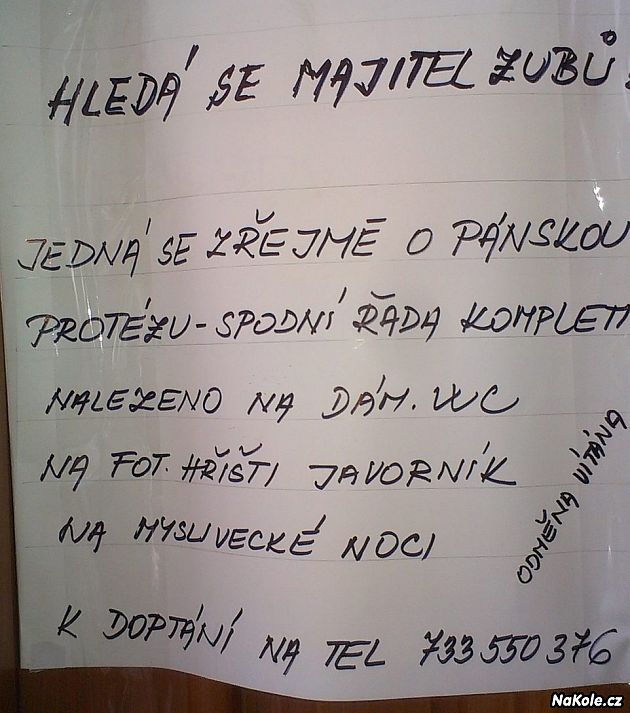 HLEDÁ SE MAJITEL ZUBŮ
JEDNÁ SE ZŘEJMĚ O PÁNSKOU
PROTÉZU - SPODNÍ ŘADA KOMPLET
NALEZENO NA DÁM. WC
NA FOT. HŘIŠTI JAVORNÍK
NA MYSLIVECKÉ NOCI
ODMĚNA VÍTÁNA
K DOPTÁNÍ NA TEL 733 550 376
NaKole.cz